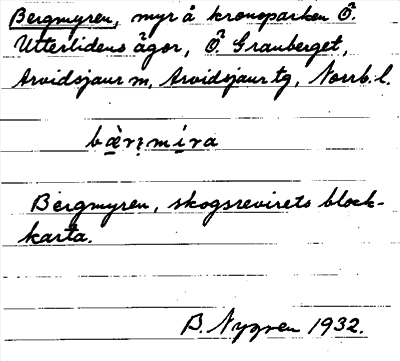 Bergmyren, myr å kronoparken Ö.
Utterlidens ägor, Ö. Granberget,
Arvidsjaur sn, Arvidsjaur tg, Norrb. l.
Bergmyren, skogsrevirets block-
karta.
B. Nygren 1932.